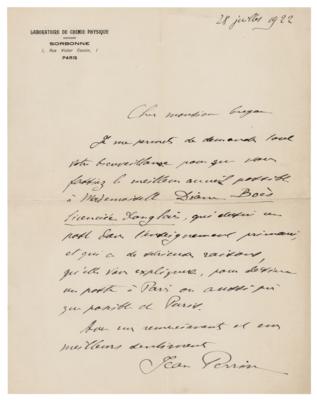 28 juillet 1922
LABORATOIRE DE CHIMIE PHYSIQUE
SORBONNE
1, Rue Victor Cousin, 1
PARIS
Cher monsieur
Je me permets de demander toute
votre bienveillance pour que vous
fassiez le meilleur accueil possible
à Mademoiselle Diane
licenciée d'anglais, qui désire un
poste dans l'enseignement primaire,
et qui a de sérieuses raisons,
qu'elle vous expliquera, pour désirer
un poste à Paris ou aussi près
que possible de Paris.
Avec mes remerciements et mes
meilleurs sentiments
Jean Perrin